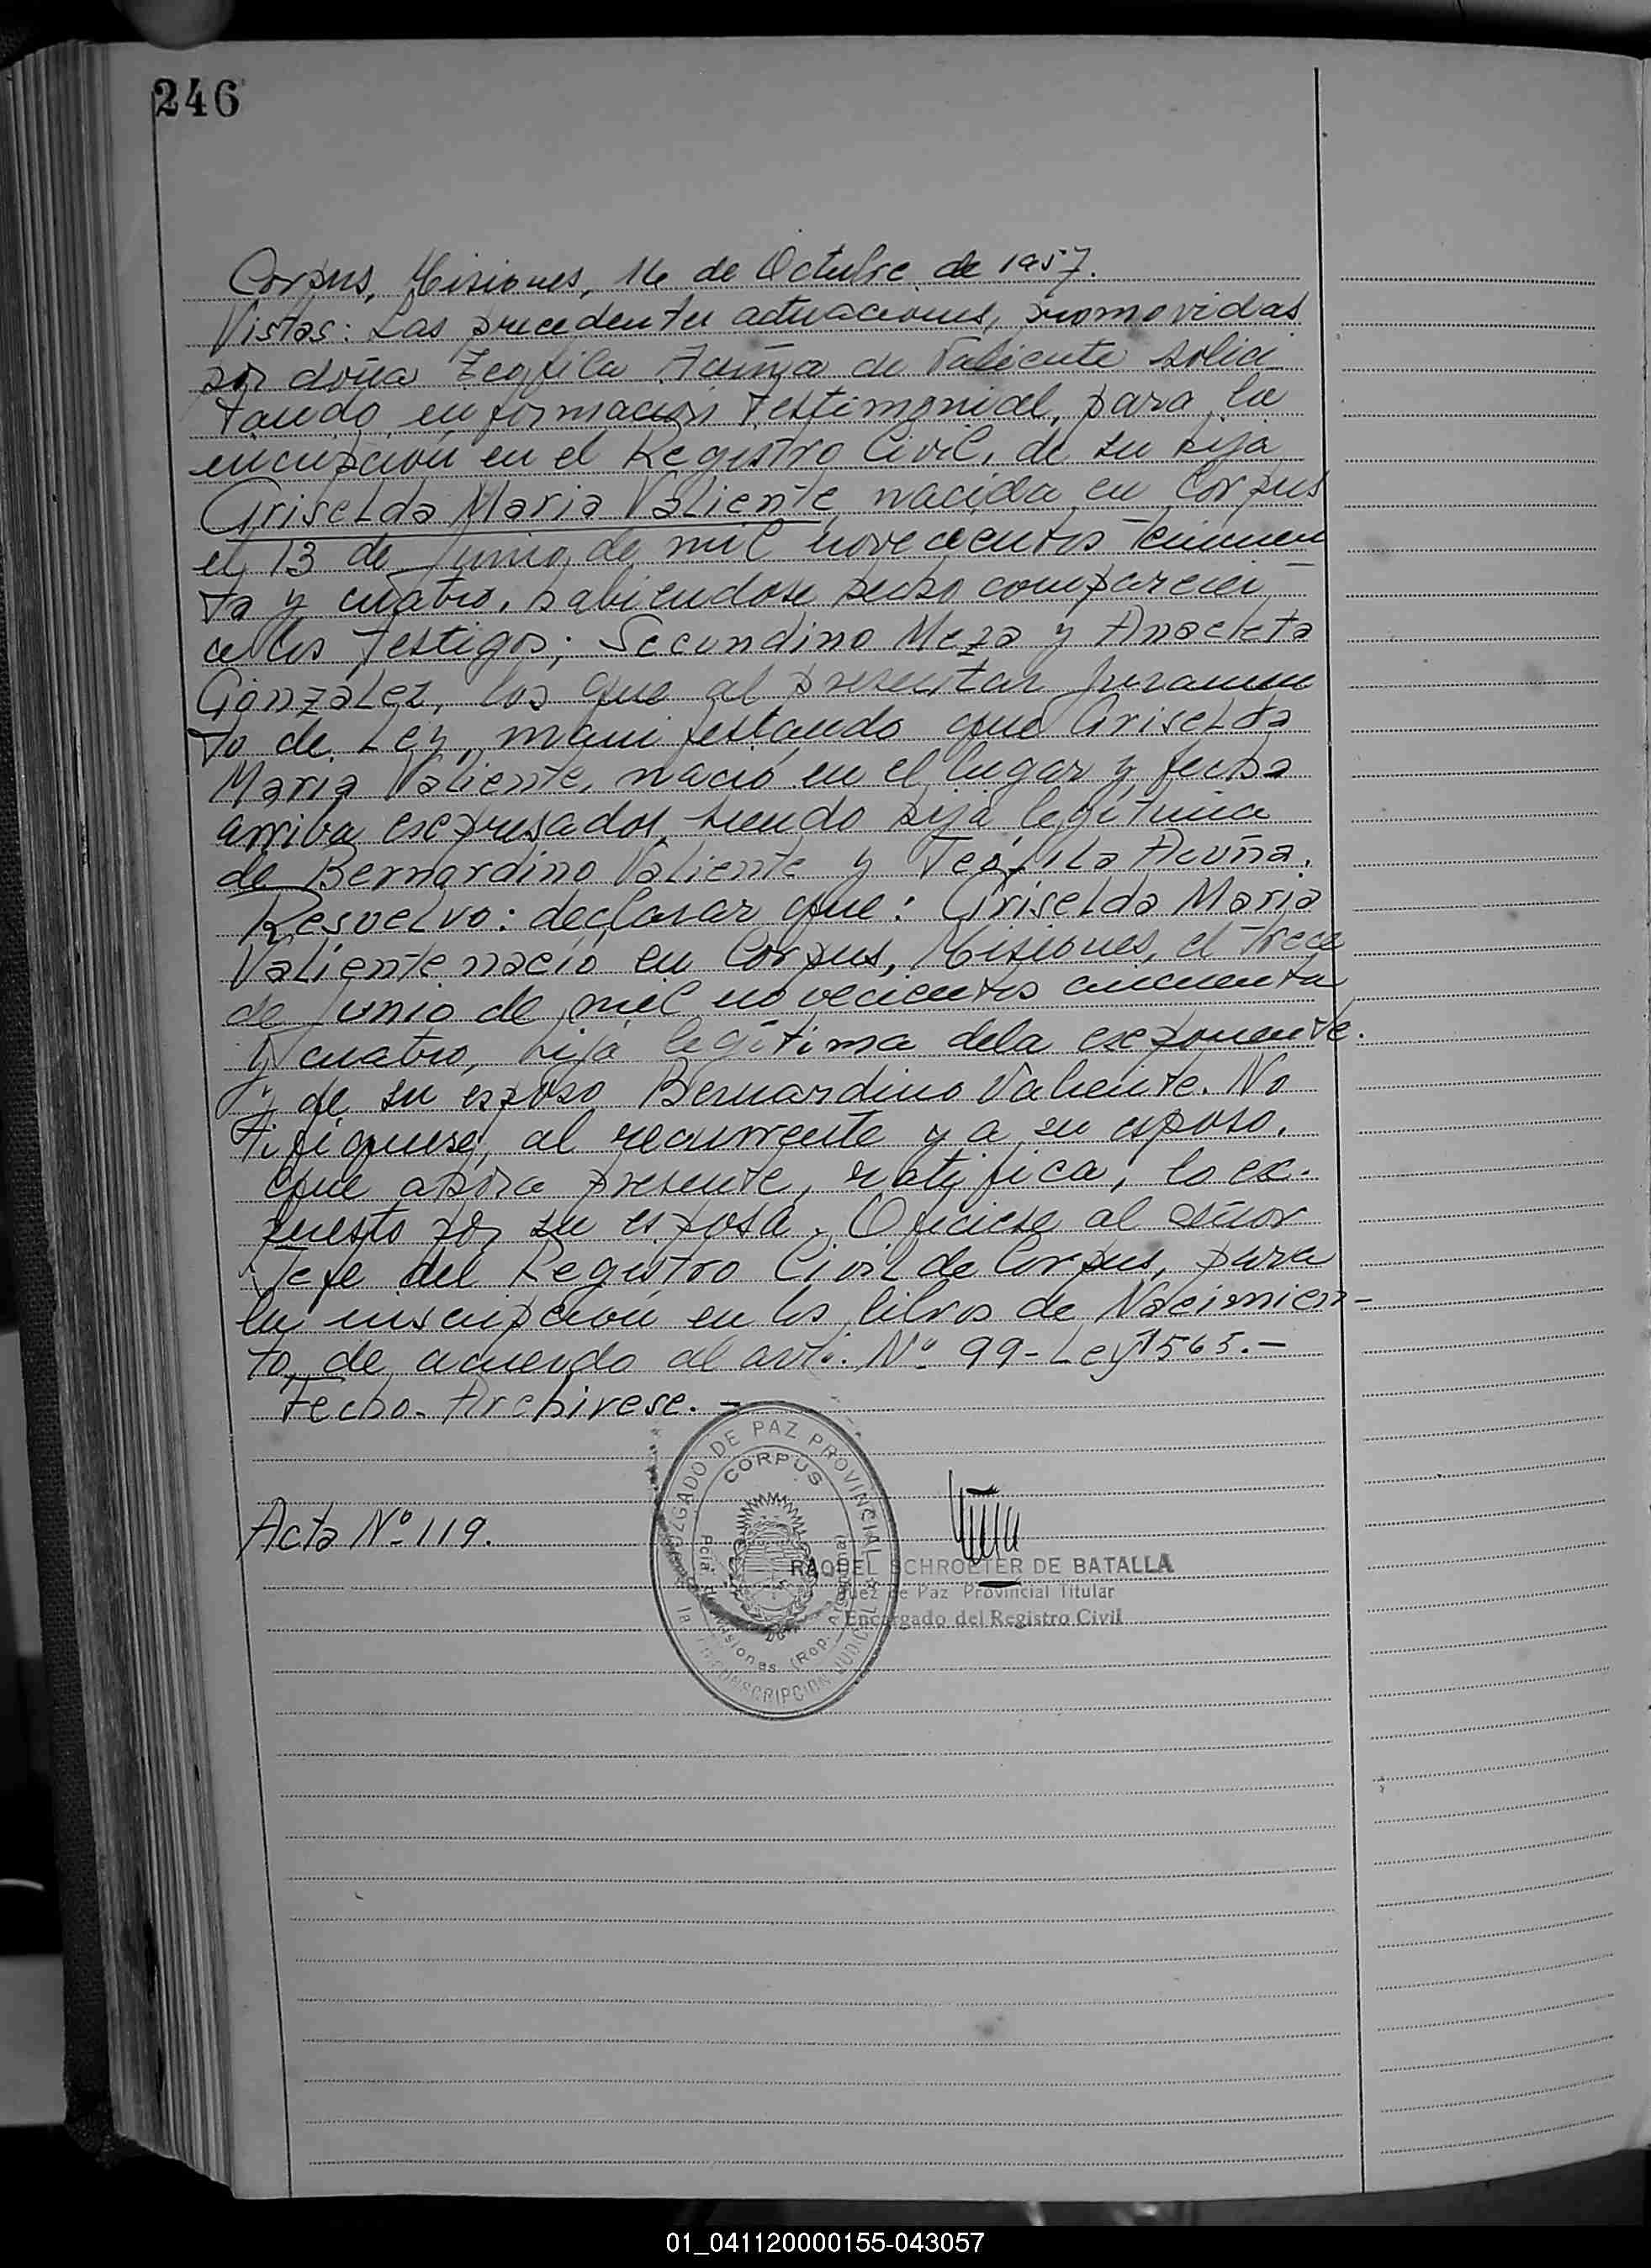 246
Corpus, Misiones, 16 de Octubre de 1957.
Vistas: Las precedentes actuaciones, promovidas
por doña Teofila Acuña de Valiente solici
tando enformacion testimonial, para la
encripcion en el Registro Civil, de su hija
Griselda Maria Valiente, nacida en Corpus
el 13 de Junio de mil novecientos
ta y cuatro, habiendose hecho comparecer
a los testigos; Secundino Meza y Anacleta
Gonzalez, los que al presentar juramen
to de Ley, manifestando que Griselda
Maria Valiente, nació en el lugar y fecha
arriba expresados, siendo hija legitima
de Bernardino Valiente y Teofila Acuña.
Resuelvo: declarar que: Griselda Maria
Valiente nació en Corpus, Misiones, el trece
de Junio de mil novecientos cincuenta
y cuatro, hija legitima dela exponente.
y de su esposo Bernardino Valiente. No
tifiquese, al recurrente y a su esposo.
que ahora presente, ratifica, lo ex-
puesto por su esposa. Oficiese al señor
Jefe del Registro Civil de Corpus, para
la inscripcion en los libros de Nacimien-
to, de acuerdo al art. Nº 99-Ley 1565.-
Fecho. Archivese. -
JUZGADO DE PAZ PROVINCIAL
CORPUS
Pcia. de Misiones (Rep. Argentina)
1a CIRCUNSCRIPCION JUDICIAL
Acta Nº 119.
RAQUEL SCHROETER DE BATALLA
Juez de Paz Provincial Titular
Encargado del Registro Civil
01_041120000155-043057